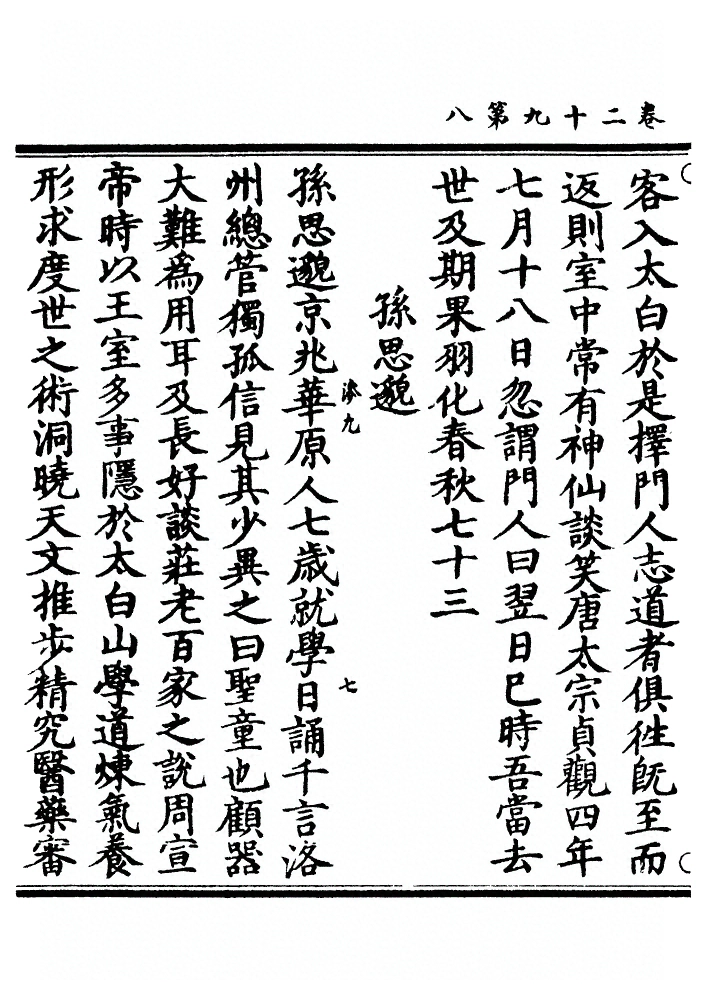 卷二十九第八
客入太白於是擇門人志道者俱徃旣至而
返則室中常有神仙談笑唐太宗貞觀四年
七月十八日忽謂門人曰翌日巳時吾當去
世及期果羽化春秋七十三
孫思邈
淡九
七
孫思邈京兆華原人七歲就學日誦千言洛
州總管獨孤信見其少異之曰聖童也顧器
大難爲用耳及長好談莊老百家之說周宣
帝時以王室多事隱於太白山學道煉氣養
形求度世之術洞曉天文推步精究醫藥審